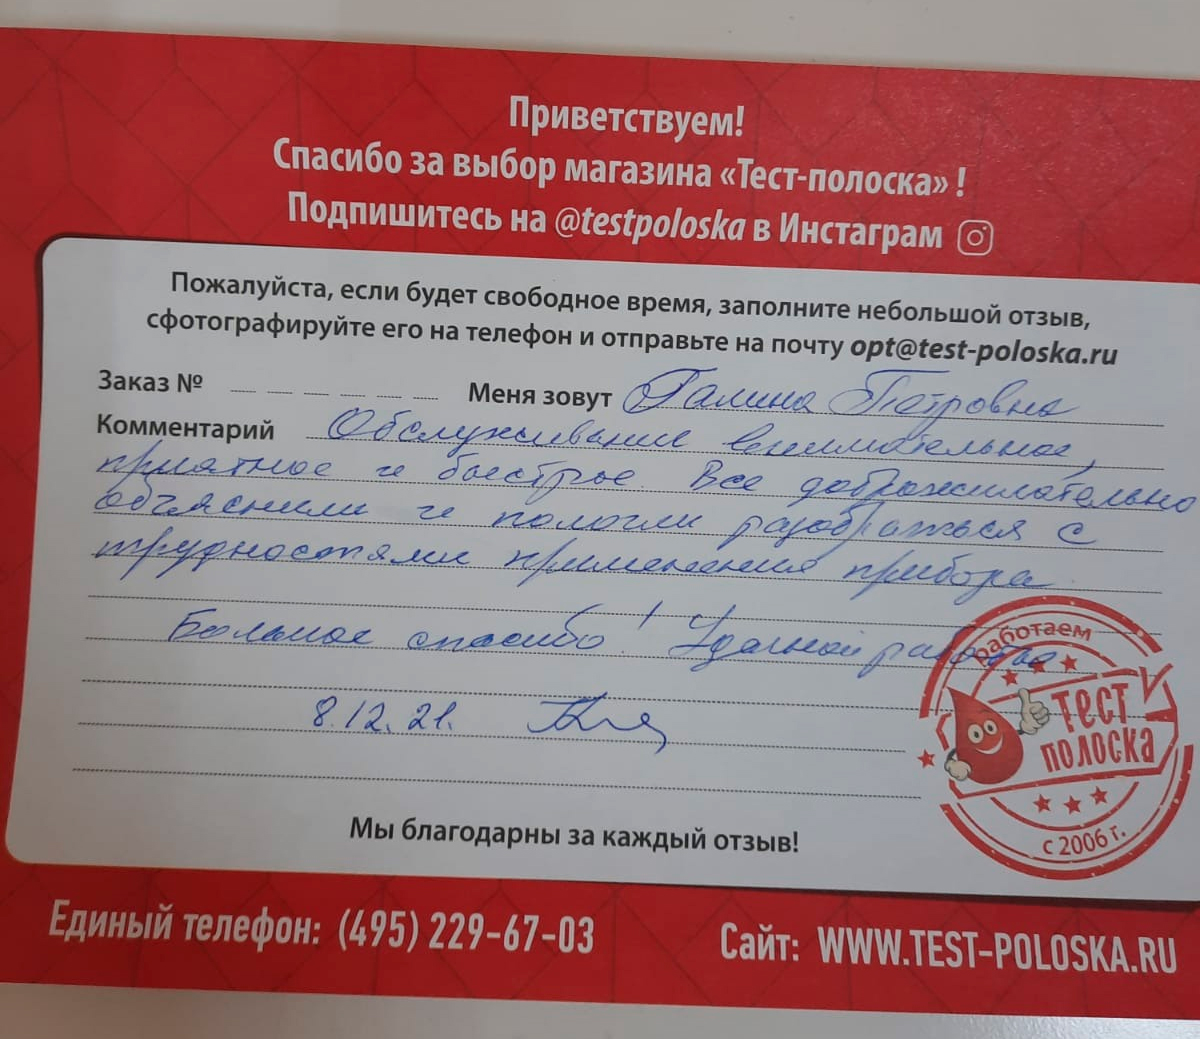 Приветствуем!
Спасибо за выбор магазина «Тест-полоска» !
Подпишитесь на @testpoloska в Инстаграм
Пожалуйста, если будет свободное время, заполните небольшой отзыв,
сфотографируйте его на телефон и отправьте на почту opt@test-poloska.ru
Заказ № Меня зовут Галина Петровна
Комментарий Обслуживание внимательное,
приятное и быстрое. Все доброжилательно
объяснили и помогли разобраться с
трудностями применения прибора
Большое спасибо! Удачной работы
8.12.21.
работаем
ТЕСТ
ПОЛОСКА
с 2006 г.
Мы благодарны за каждый отзыв!
Единый телефон: (495) 229-67-03
Сайт: WWW.TEST-POLOSKA.RU